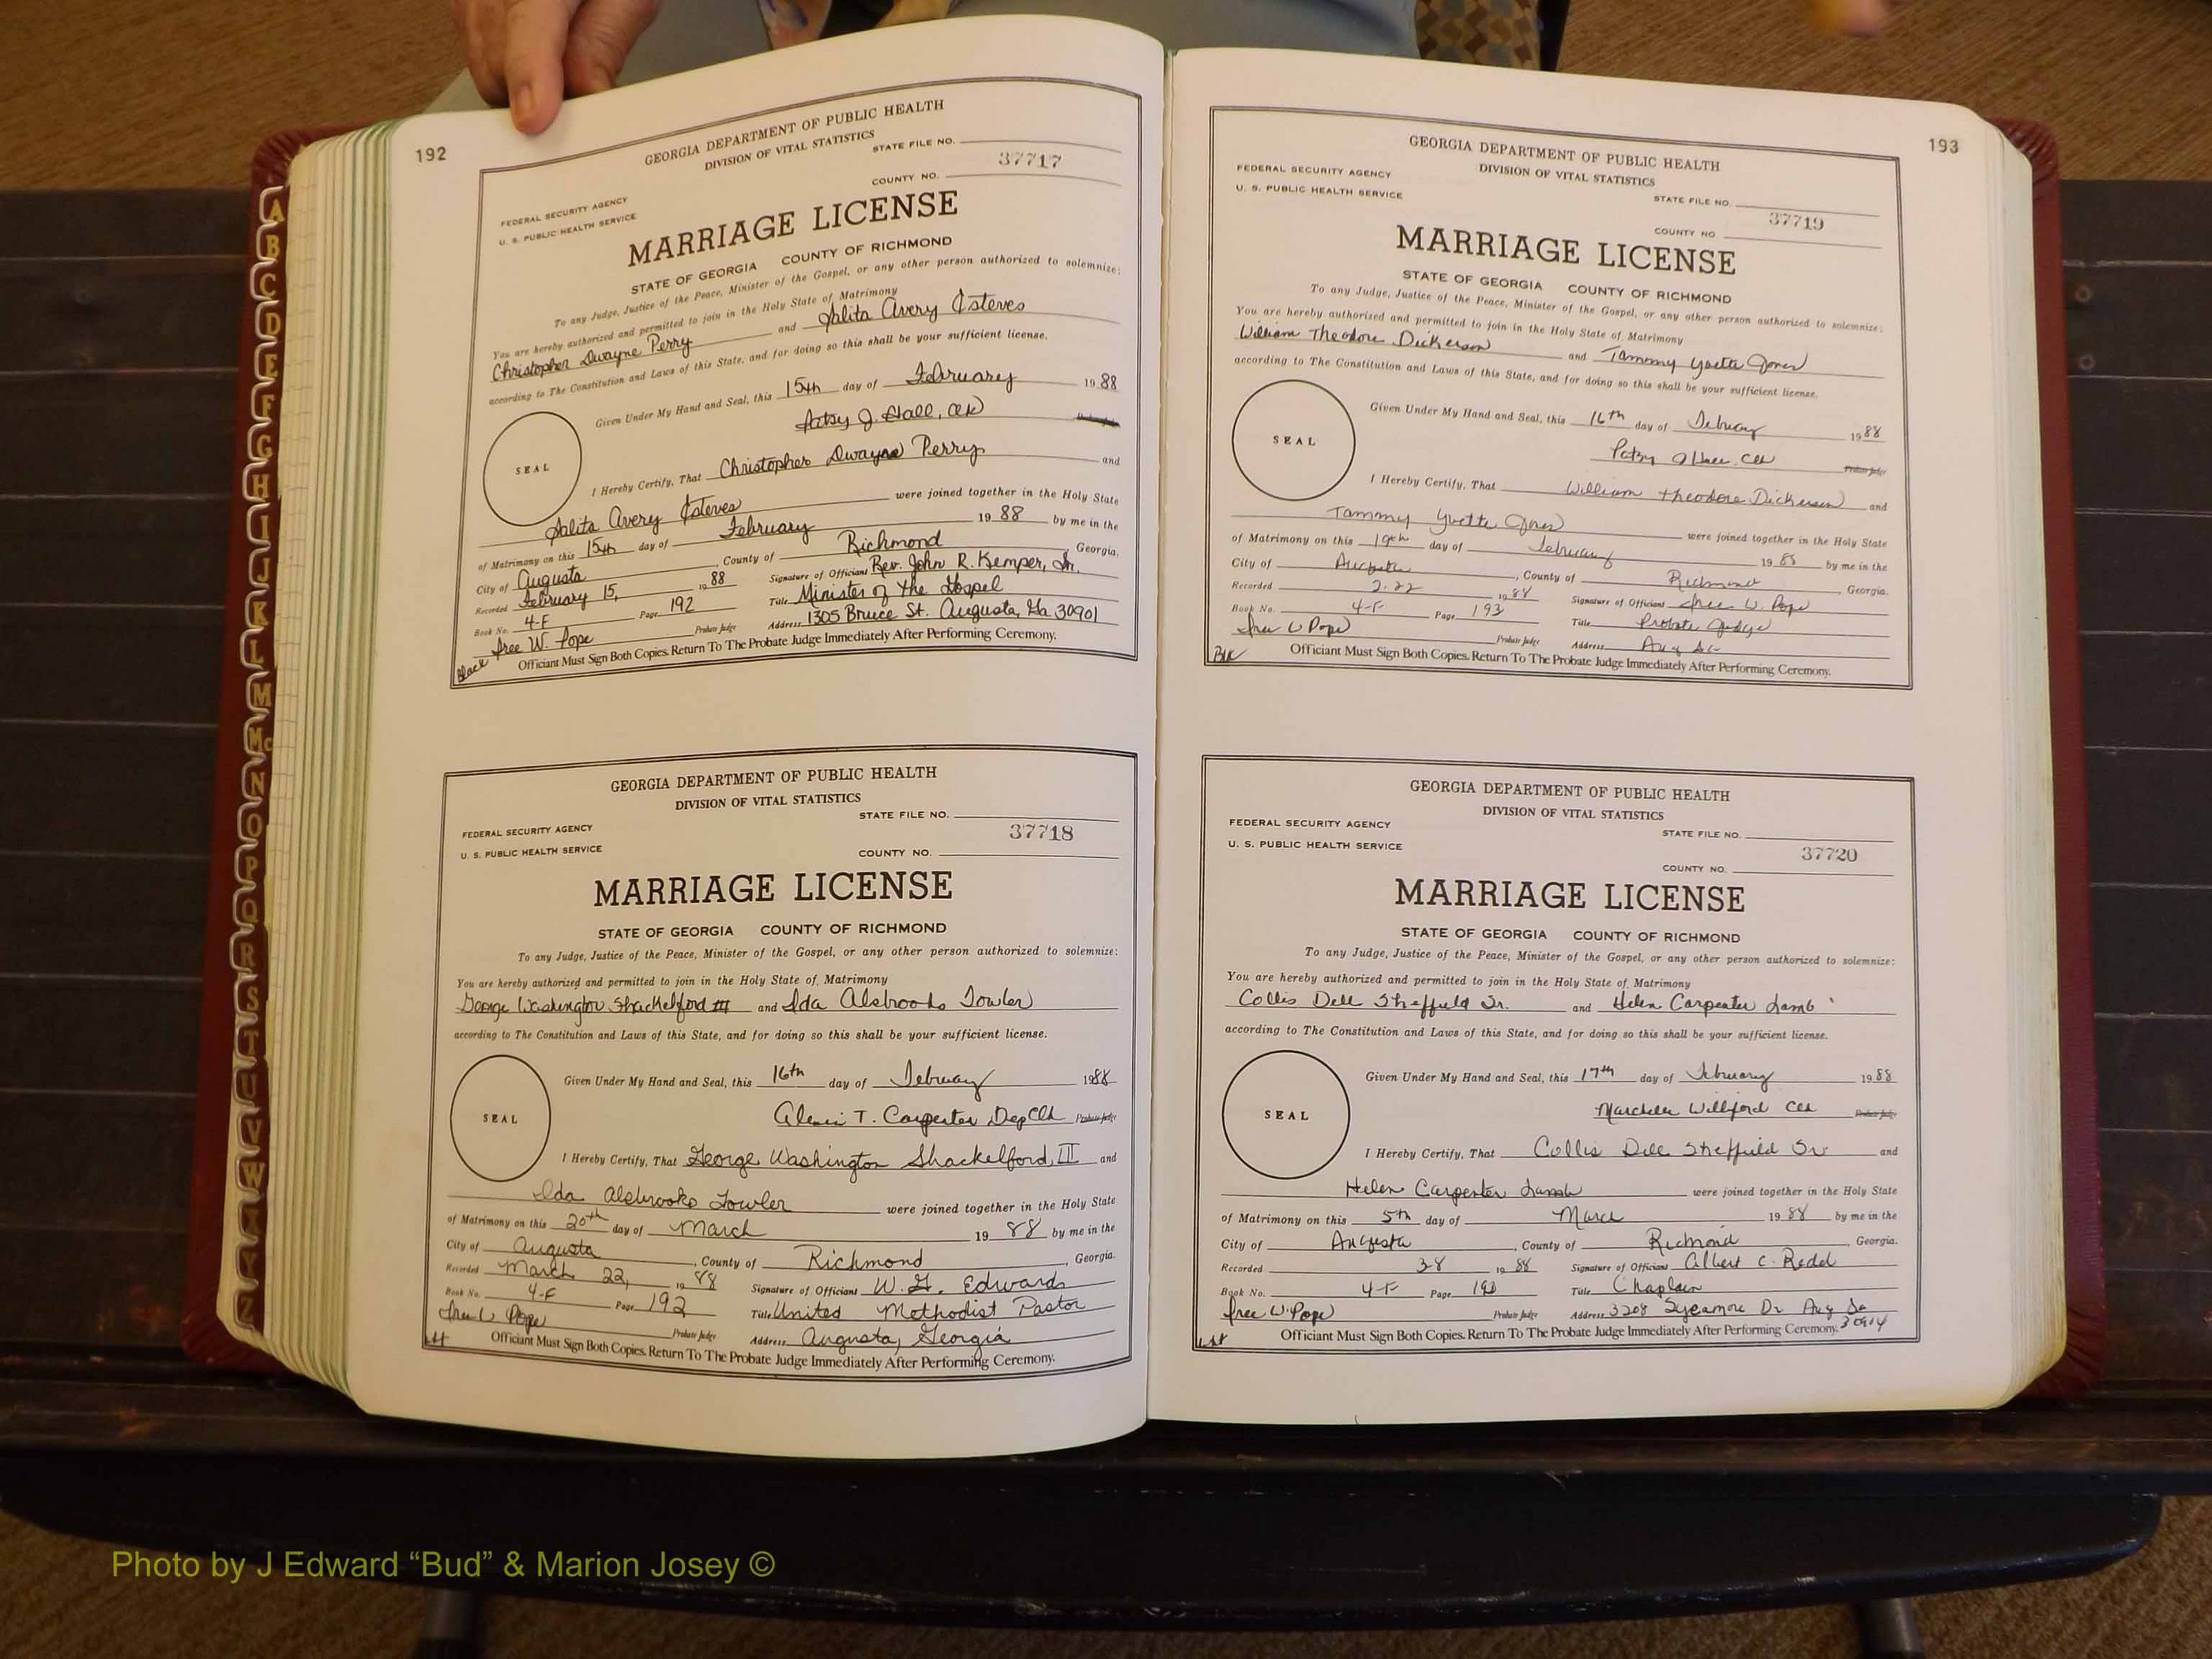 192
GEORGIA DEPARTMENT OF PUBLIC HEALTH
DIVISION OF VITAL STATISTICS
STATE FILE NO.
37717
COUNTY NO.
FEDERAL SECURITY AGENCY
U. S. PUBLIC HEALTH SERVICE
MARRIAGE LICENSE
STATE OF GEORGIA COUNTY OF RICHMOND
To any Judge, Justice of the Peace, Minister of the Gospel, or any other person authorized to solemnize:
You are hereby authorized and permitted to join in the Holy State of Matrimony
Christopher Dwayne Perry and Lalita Avery Esteves
according to The Constitution and Laws of this State, and for doing so this shall be your sufficient license.
Given Under My Hand and Seal, this 15th day of February 1988
Patsy J. Hall, Clk
SEAL
I Hereby Certify, That Christopher Dwayne Perry and
Lalita Avery Esteves were joined together in the Holy State
of Matrimony on this 15th day of February 1988 by me in the
City of Augusta, County of Richmond, Georgia.
Recorded February 15, 1988 Signature of Officiant Rev. John R. Kemper, Sr.
Book No. 4-F Page 192 Title Minister of the Gospel
Free W. Pope Probate Judge Address 1305 Bruce St. Augusta, Ga 30901
Black Officiant Must Sign Both Copies. Return To The Probate Judge Immediately After Performing Ceremony.
GEORGIA DEPARTMENT OF PUBLIC HEALTH
DIVISION OF VITAL STATISTICS
STATE FILE NO.
37718
COUNTY NO.
FEDERAL SECURITY AGENCY
U. S. PUBLIC HEALTH SERVICE
MARRIAGE LICENSE
STATE OF GEORGIA COUNTY OF RICHMOND
To any Judge, Justice of the Peace, Minister of the Gospel, or any other person authorized to solemnize:
You are hereby authorized and permitted to join in the Holy State of Matrimony
George Washington Shackelford III and Ida Alsbrooks Fowler
according to The Constitution and Laws of this State, and for doing so this shall be your sufficient license.
Given Under My Hand and Seal, this 16th day of February 1988
T. Carpenter Dep Clk Probate Judge
SEAL
I Hereby Certify, That George Washington Shackelford, III and
Ida Alsbrooks Fowler were joined together in the Holy State
of Matrimony on this 20th day of March 1988 by me in the
City of Augusta, County of Richmond, Georgia.
Recorded March 22, 1988 Signature of Officiant W. G. Edwards
Book No. 4-F Page 192 Title United Methodist Pastor
Free W Pope Probate Judge Address Augusta, Georgia
Officiant Must Sign Both Copies. Return To The Probate Judge Immediately After Performing Ceremony.
193
GEORGIA DEPARTMENT OF PUBLIC HEALTH
DIVISION OF VITAL STATISTICS
FEDERAL SECURITY AGENCY
U. S. PUBLIC HEALTH SERVICE
STATE FILE NO.
37719
COUNTY NO.
MARRIAGE LICENSE
STATE OF GEORGIA COUNTY OF RICHMOND
To any Judge, Justice of the Peace, Minister of the Gospel, or any other person authorized to solemnize:
You are hereby authorized and permitted to join in the Holy State of Matrimony
William Theodore Dickerson and Tammy Yvette Jones
according to The Constitution and Laws of this State, and for doing so this shall be your sufficient license.
Given Under My Hand and Seal, this 16th day of February 1988
Patsy J Hall Clk Probate Judge
SEAL
I Hereby Certify, That William Theodore Dickerson and
Tammy Yvette Jones were joined together in the Holy State
of Matrimony on this 19th day of February 1988 by me in the
City of Augusta, County of Richmond, Georgia.
Recorded 2-22 1988 Signature of Officiant Free W. Pope
Book No. 4-F Page 193 Title Probate Judge
Free W Pope Probate Judge Address Aug Ga
Blk Officiant Must Sign Both Copies. Return To The Probate Judge Immediately After Performing Ceremony.
GEORGIA DEPARTMENT OF PUBLIC HEALTH
DIVISION OF VITAL STATISTICS
FEDERAL SECURITY AGENCY
U. S. PUBLIC HEALTH SERVICE
STATE FILE NO.
37720
COUNTY NO.
MARRIAGE LICENSE
STATE OF GEORGIA COUNTY OF RICHMOND
To any Judge, Justice of the Peace, Minister of the Gospel, or any other person authorized to solemnize:
You are hereby authorized and permitted to join in the Holy State of Matrimony
Collis Dell Sheffield Sr. and Helen Carpenter Lamb
according to The Constitution and Laws of this State, and for doing so this shall be your sufficient license.
Given Under My Hand and Seal, this 17th day of February 1988
Williford Clk Probate Judge
SEAL
I Hereby Certify, That Collis Dell Sheffield Sr and
Helen Carpenter Lamb were joined together in the Holy State
of Matrimony on this 5th day of March 1988 by me in the
City of Augusta, County of Richmond, Georgia.
Recorded 3-8 1988 Signature of Officiant Albert C. Redd
Book No. 4-F Page 193 Title Chaplain
Free W. Pope Probate Judge Address 3208 Sycamore Dr Aug Ga
30914
Officiant Must Sign Both Copies. Return To The Probate Judge Immediately After Performing Ceremony.
A
B
C
D
E
F
G
H
I
J
K
L
M
Mc
N
O
P
Q
R
S
T
U
V
W
X
Y
Z
Photo by J Edward “Bud” & Marion Josey ©